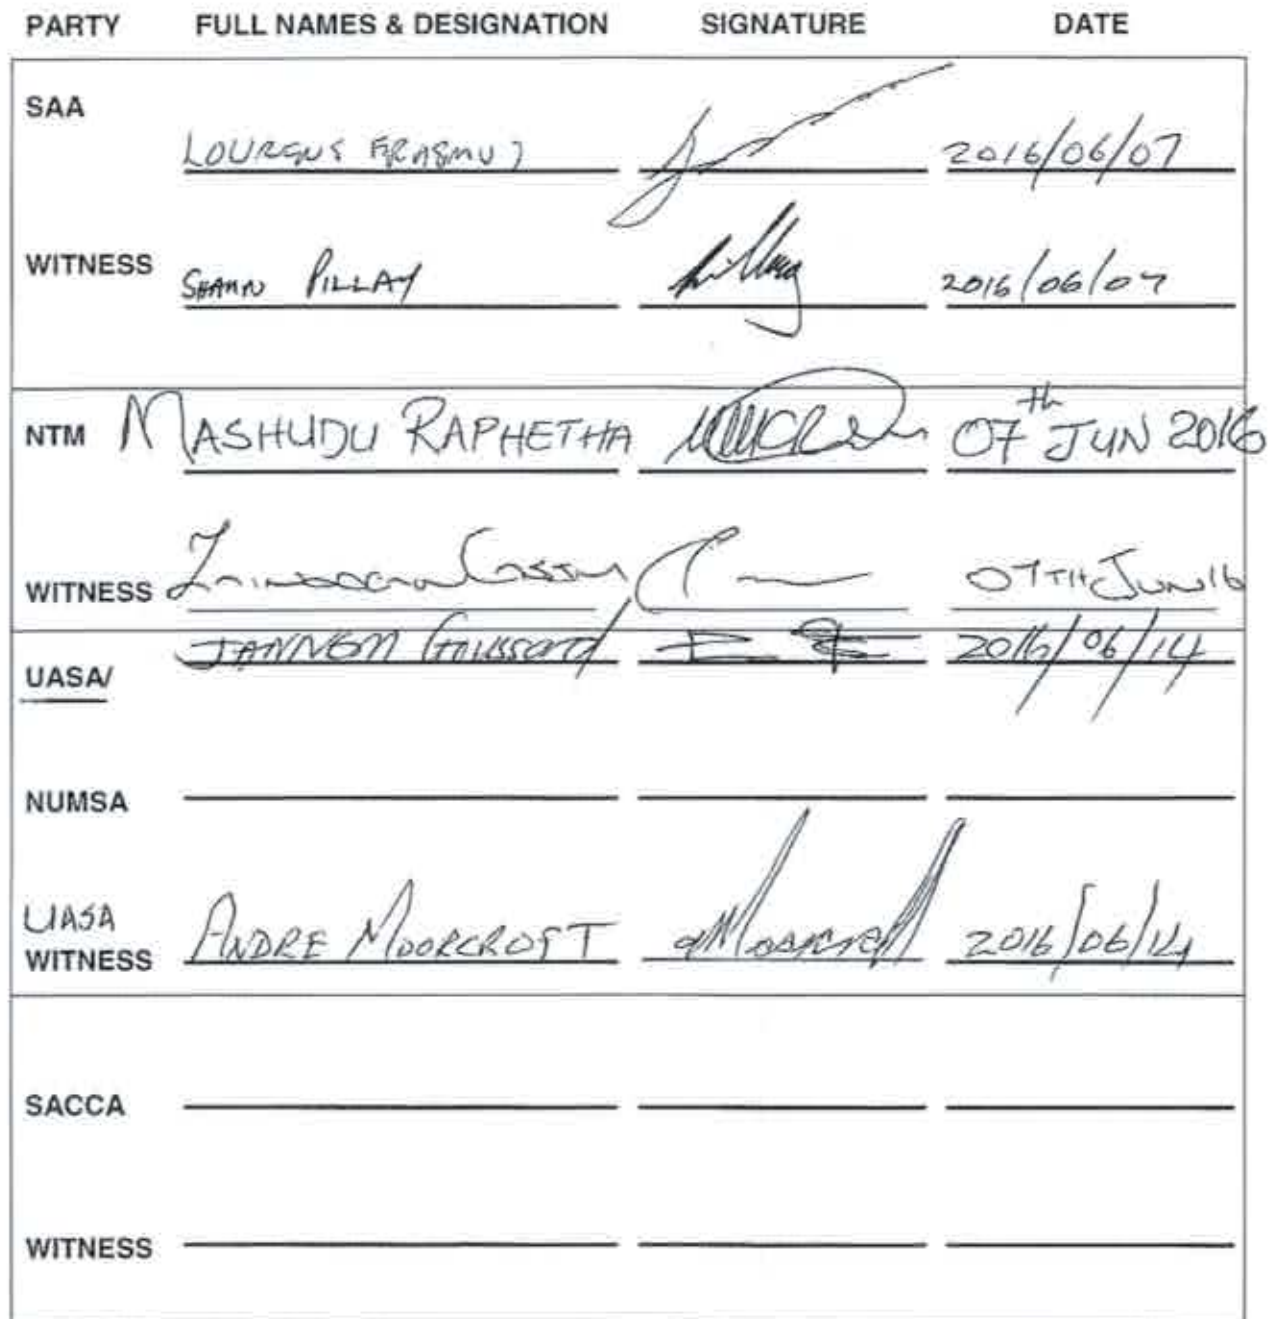 PARTY FULL NAMES & DESIGNATION SIGNATURE DATE
SAA
LOURENS ERASMUS 2016/06/07
WITNESS SHAUN PILLAY 2016/06/07
NTM MASHUDU RAPHETHA 07th JUN 2016
WITNESS 07TH JUN 16
2016/06/14
UASA/
NUMSA
UASA
WITNESS ANDRE MOORCROFT 2016/06/14
SACCA
WITNESS